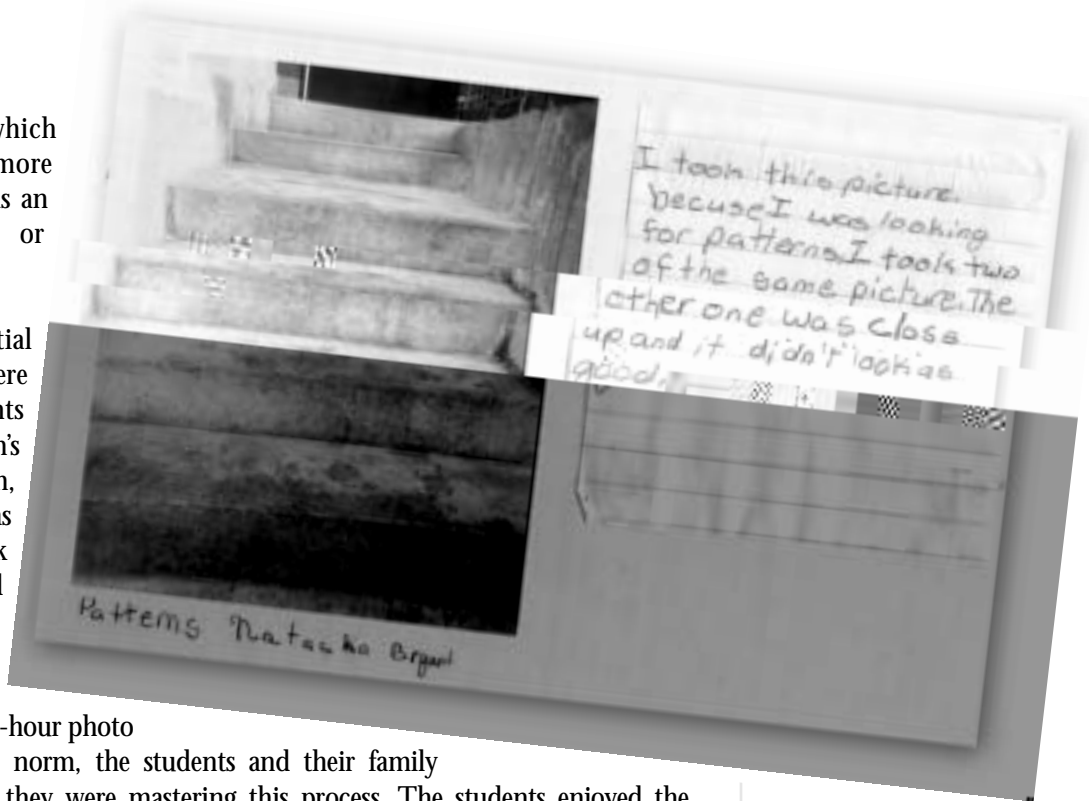 which
more
s an
or
tial
ere
nts
n's
n,
ns
k
l
-hour photo
norm, the students and their family
they were mastering this process. The students enjoyed the
I took this picture.
becuse I was looking
for patterns. I took two
of the same picture. The
other one was close
up and it didn't look as
good.
Patterns Natasha Bryant